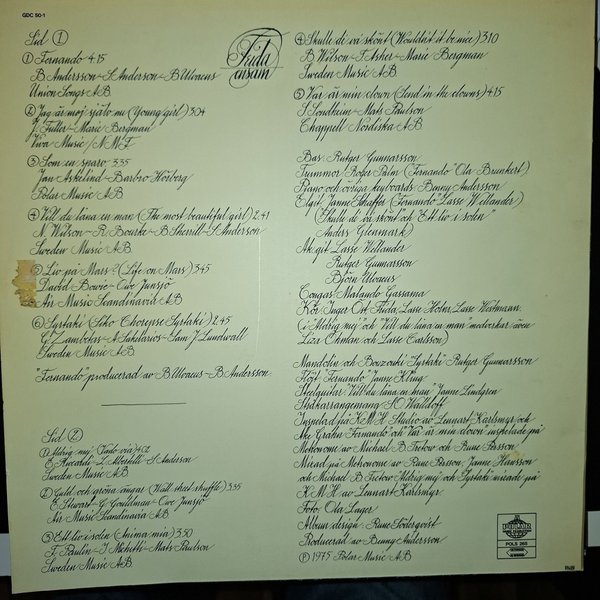 GDC 50-1
Sid 1
Frida
ensam
1 Fernando 4.15
B. Andersson-S. Anderson-B. Ulvaeus
Union Songs A.B.
2 Jag är mej själv nu (Young girl) 3.04
J. Fuller-Marie Bergman
Viva Music/N.M.F.
3 Som en sparv 3.35
Jan Askelind-Barbro Hörberg
Polar Music A.B.
4 Vill du låna en man (The most beautiful girl) 2.41
N. Wilson-R. Bourke-B. Sherrill-S. Anderson
Sweden Music A.B.
5 Liv på Mars? (Life on Mars) 3.45
David Bowie-Owe Junsjö
Air Music Scandinavia A.B.
6 Syrtaki (Siko Chorepse Syrtaki) 2.45
G. Zambetas-A. Sakellarios-Sam J. Lundwall
Sweden Music A.B.
"Fernando" producerad av B. Ulvaeus-B. Andersson
Sid 2
1 Aldrig mej (Vado via) 4.02
E. Riccardi-L. Albertelli-S. Anderson
Sweden Music A.B.
2 Guld och gröna ängar (Wall street shuffle) 3.35
E. Stewart-G. Gouldman-Owe Junsjö
Air Music Scandinavia A.B.
3 Ett liv i solen (Anima mia) 3.50
F. Paulin-I. Michetti-Mats Paulson
Sweden Music A.B.
4 Skulle de va skönt (Wouldn't it be nice) 3.10
B. Wilson-T. Asher-Marie Bergman
Sweden Music A.B.
5 Var är min clown (Send in the clowns) 4.15
S. Sondheim-Mats Paulson
Chappell Nordiska A.B.
Bas: Rutger Gunnarsson
Trummor: Roger Palm (Fernando "Ola Brunkert)
Piano och övriga keyboards: Benny Andersson
El.git: Janne Schaffer (Fernando" Lasse Wellander)
(Skulle de va skönt och Ett liv i solen"
Anders Glenmark)
Ak.git: Lasse Wellander
Rutger Gunnarsson
Björn Ulvaeus
Congas: Malando Gassama
Kör: Inger Öst, Frida, Lasse Holm, Lasse Westmann.
(i "Aldrig mej" och "Vill du låna en man" medverkar även
Liza Öhman och Lasse Carlsson)
Mandolin och Bouzouki "Syrtaki" Rutger Gunnarsson
Flöjt "Fernando" Janne Kling
Steelguitar "Vill du låna en man" Janne Lindgren
Stråkarrangemang S.O. Walldoff
Inspelad på K.M.H. Studio av Lennart Karlsmyr och
Åke Grahn. "Fernando" och "Var är min clown" inspelade på
Metronome av Michael B. Tretow och Rune Persson.
Mixad på Metronome av Rune Persson, Janne Hansson
och Michael B. Tretow. "Aldrig mej" och Syrtaki mixade på
K.M.H. av Lennart Karlsmyr
Foto: Ola Lager
Album design: Rune Söderqvist
Producerad av Benny Andersson
℗ 1975 Polar Music A.B.
POLS 265